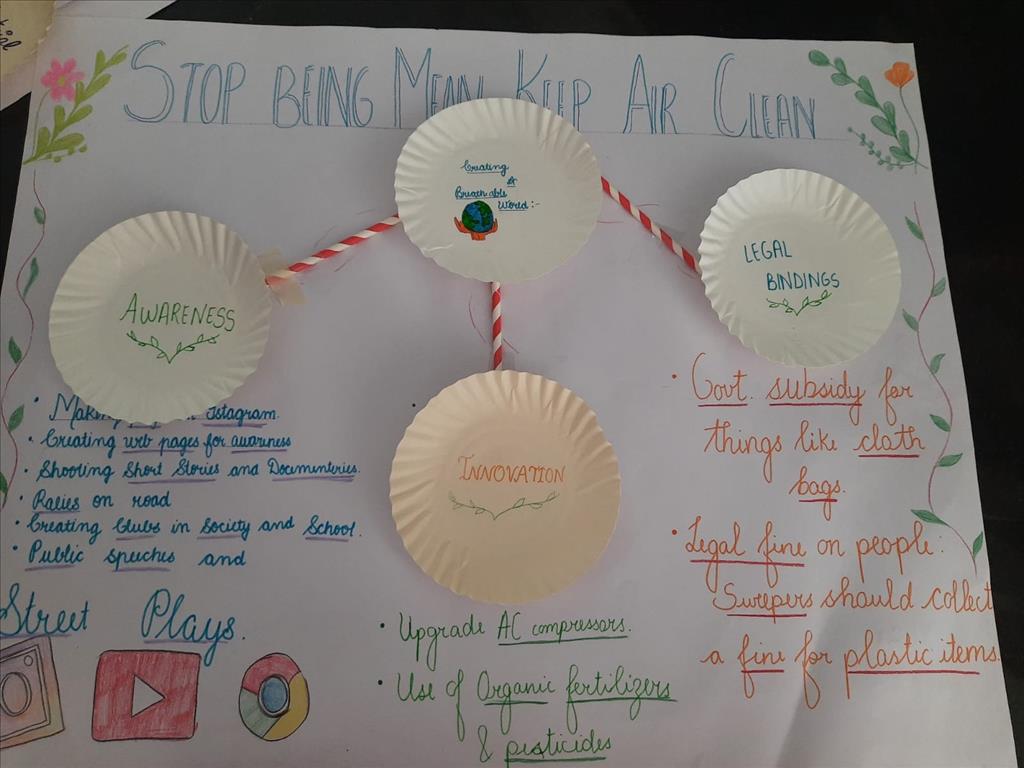 STOP BEING MEAN KEEP AIR CLEAN
Creating
A
Breathable
World:-
AWARENESS
LEGAL
BINDINGS
INNOVATION
Istagram.
• Creating web pages for awareness
• Shooting Short Stories and Documenteries.
• Ralies on road
• Creating Clubs in Society and School.
• Public speeches and
Street Plays.
• Upgrade AC compressors.
• Use of Organic fertilizers
& pesticides
• Govt. subsidy for
things like cloth
bags.
• Legal fine on people.
Sweepers should collect
a fine for plastic items.